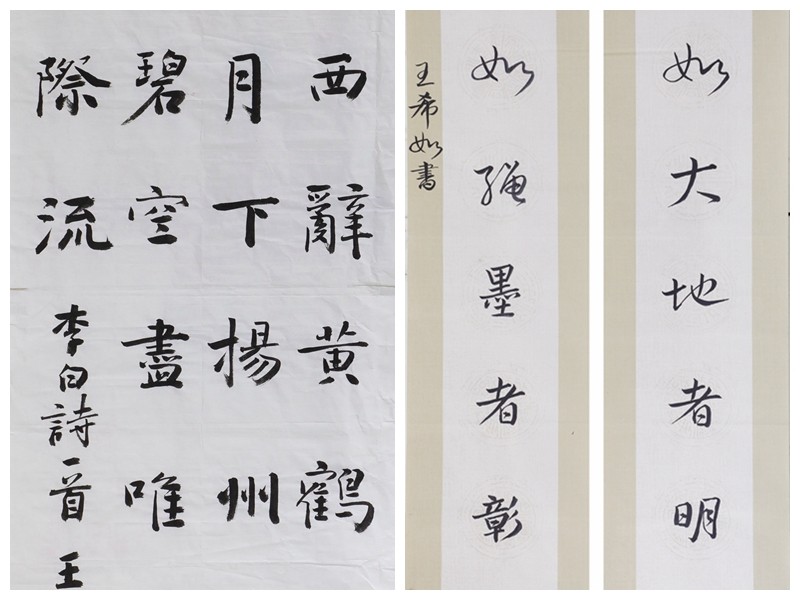 西辭黄鶴
月下揚州
碧空盡唯
際流
李白詩一首 王
如大地者明
如繩墨者彰
王希如書